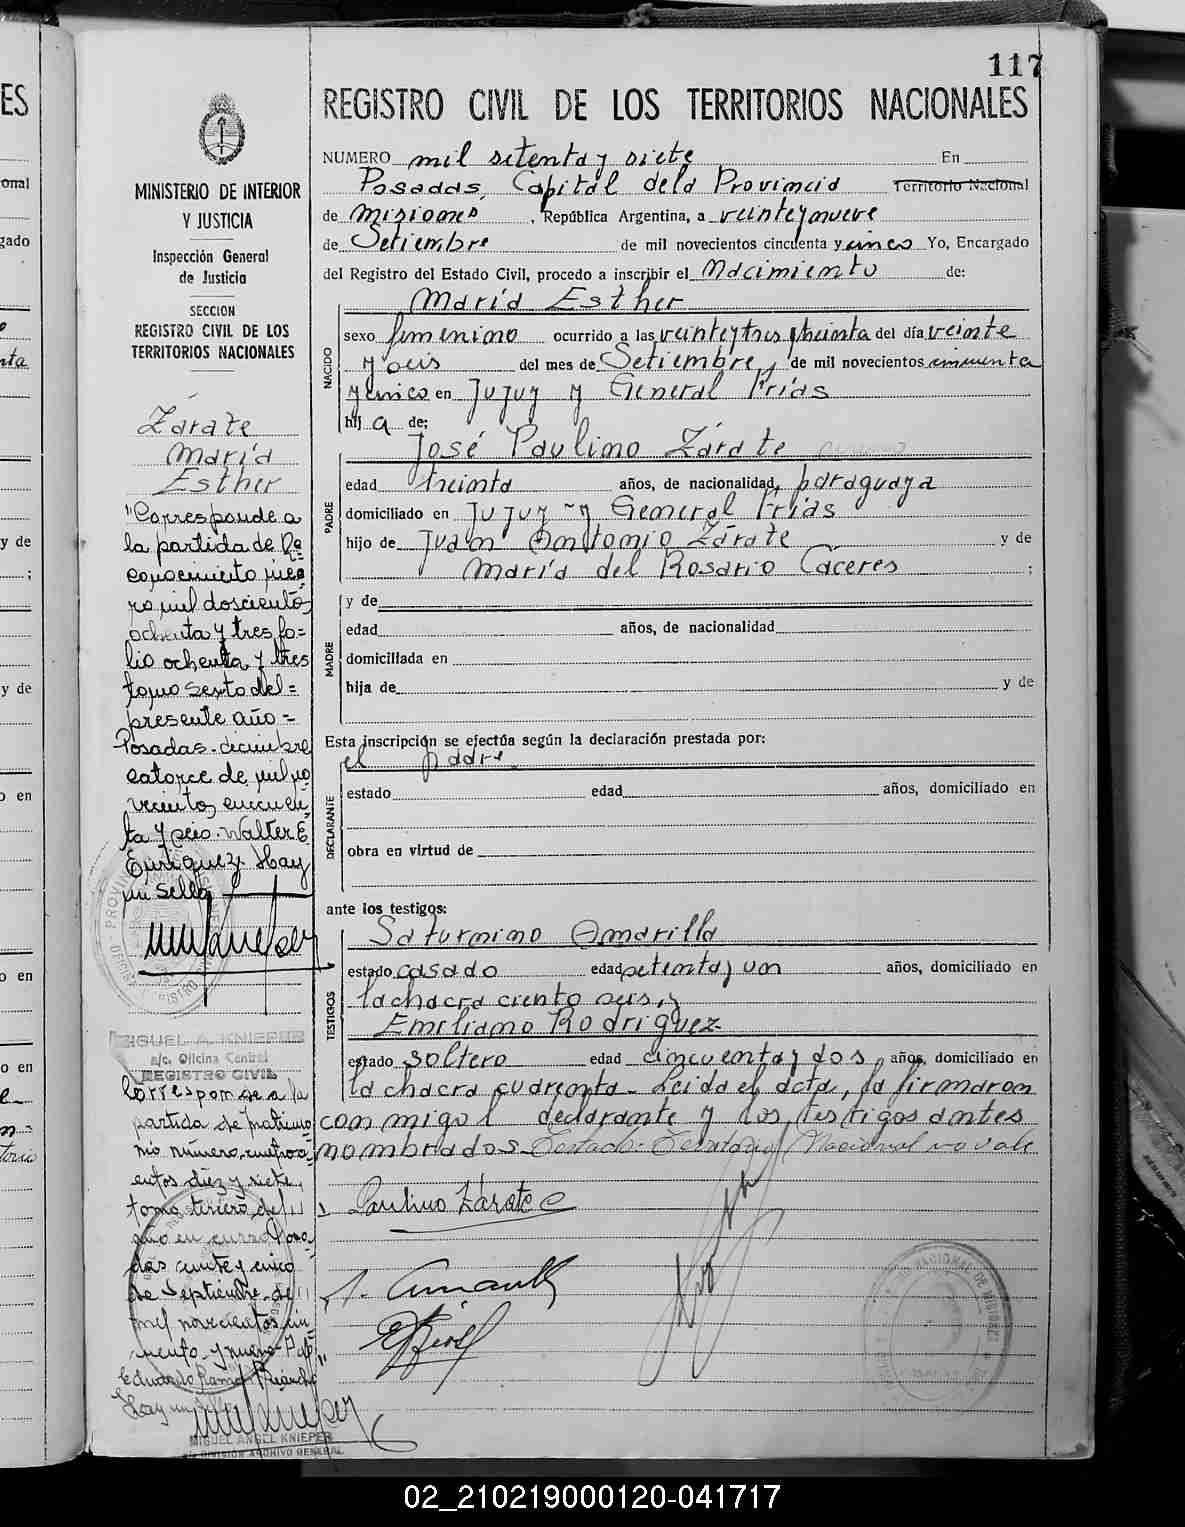 117
REGISTRO CIVIL DE LOS TERRITORIOS NACIONALES
MINISTERIO DE INTERIOR
Y JUSTICIA
Inspección General
de Justicia
SECCION
REGISTRO CIVIL DE LOS
TERRITORIOS NACIONALES
Zárate
María
Esther
"Corresponde a
la partida de Re=
conocimiento núme
ro mil doscientos
ochenta y tres fo=
lio ochenta y tres
tomo sexto del=
presente año=
Posadas. diciembre
catorce de mil no
vecientos cincuen=
ta y seis. Walter E
Enriquez. Hay
un sello
MIGUEL A. KNIEPER
a/c. Oficina Central
REGISTRO CIVIL
Corresponde a la
partida de matrimo
nio número cuatroci
entos diez y siete,
tomo tercero del
año en curso Posa
das veinte y cinco
de Septiembre de
mil novecientos cin
cuenta y nueve
Eduardo Ramón
Hay un sello
MIGUEL ANGEL KNIEPER
DIVISION ARCHIVO GENERAL
NUMERO mil setenta y siete En
Posadas, Capital dela Provincia Territorio Nacional
de Misiones, República Argentina, a veintey nueve
de Setiembre de mil novecientos cincuenta y cinco Yo, Encargado
del Registro del Estado Civil, procedo a inscribir el Nacimiento de:
María Esther
NACIDO
sexo femenino ocurrido a las veinteytres y treinta del día veinte
y seis del mes de Setiembre, de mil novecientos cincuenta
y cinco en Jujuy y General Frías
hij a de:
José Paulino Zárate
PADRE
edad treinta años, de nacionalidad, paraguaya
domiciliado en Jujuy y General Frías
hijo de Juan Antonio Zárate y de
María del Rosario Caceres ;
MADRE
y de
edad años, de nacionalidad
domiciliada en
hija de y de
Esta inscripción se efectúa según la declaración prestada por:
el padre
DECLARANTE
estado edad años, domiciliado en
obra en virtud de
ante los testigos:
Saturnino Amarilla
TESTIGOS
estado casado edad setenta y un años, domiciliado en
la chacra ciento seis, y
Emiliano Rodriguez
estado soltero edad cincuenta y dos años, domiciliado en
la chacra cuarenta- Leida el acta, la firmaron
conmigo el declarante y los testigos antes
nombrados- Testado: Territorio Nacional no vale
Paulino Zárate
02_210219000120-041717